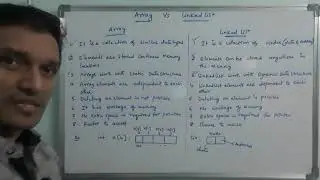 Array Vs Linked List
Array
1. It is a collection of similar data types
2. Elements are stored continous memory location
3. Arrays work with static Data structure
4. Array elements are independent to each other
5. Deleting an element is not possible
6. It has wastage of memory
7. No Extra space is required for pointer
8. Faster to access
int a[4];
Linked List
1. It is a collection of nodes (data & address)
2. Elements can be stored anywhere in the memory
3. Linked List work with Dynamic Data structure
4. Linked List elements are dependent to each other
5. Deleting an element is possible
6. No wastage of memory
7. Extra space is required for pointer
8. Slower to access
Address